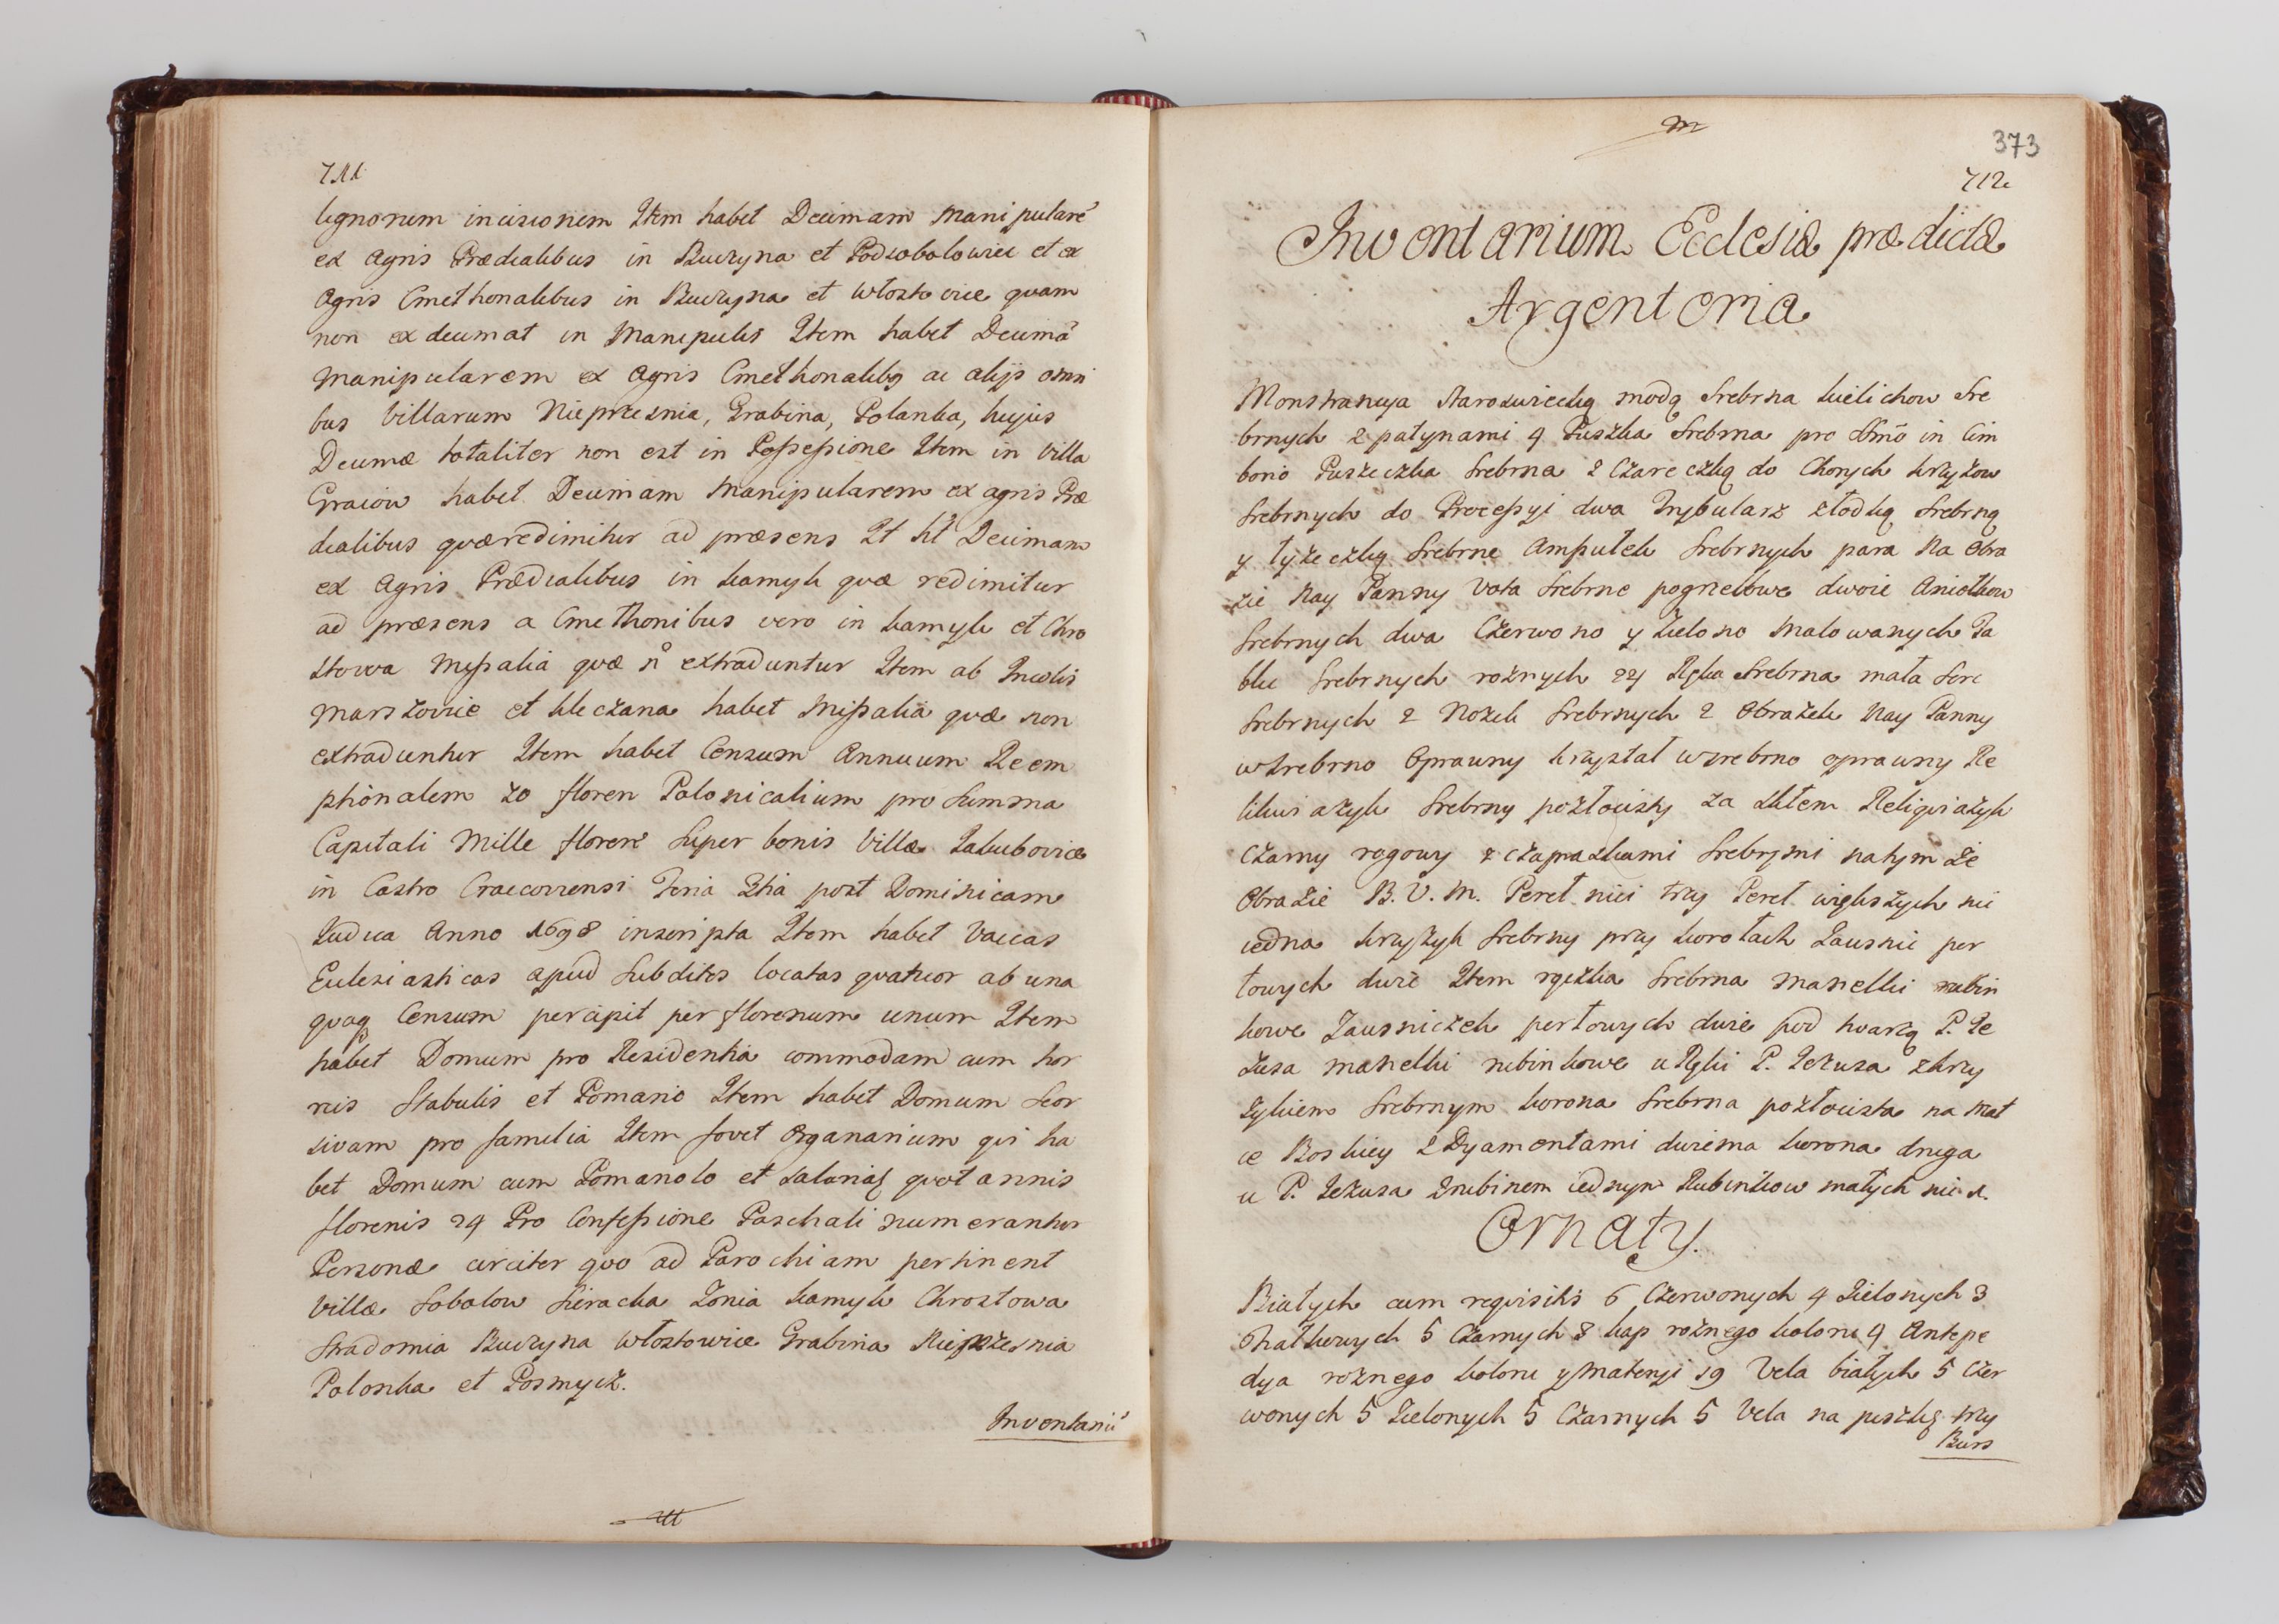 711
lignorum incisionem Item habet Decimam Manipularē
ex Agris Prædialibus in Buczyna et Podsobolowiec et ex
Agris Cmethonalibus in Buczyna et Włosto vice quam
non ex decimat in Manipulis Item habet Decimā
Manipularem ex Agris Cmethonalibq ac alijs omni
bus Villarum Nieprzesnia, Grabina, Polanka, hujus
Decimæ totaliter non est in Possessione Item in Villa
Graiow habet Decimam Manipularem ex agris Præ
dialibus quæ redimitur ad præsens It ht Decimam
ex Agris Prædialibus in Kamyk quæ redimitur
ad præsens a Cmethonibus vero in Kamyk et Chro
stowa Missalia quæ n̊ extraduntur Item ab Incolis
Marszovice et Kleczana habet Missalia quæ non
extraduntur Item habet Censum Annuum Reem
ptionalem 70 floren Polonicalium pro Summa
Capitali Mille floren Super bonis Villæ Jakubovice
in Castro Cracoviensi Feria 2tia post Dominicam
Judica Anno 1698 inscripta Item habet Vaccas
Ecclesiasticas apud Subditos locatas quatuor ab una
quaq Censum percipit per florenum unum Item
habet Domum pro Residentia commodam cum hor
reis Stabulis et Pomario Item habet Domum Seor
sivam pro familia Item fovet Organarium qui ha
bet Domum cum Pomariolo et Salariaʃ quot annis
florenis 24 Pro Confessione Paschali numerantur
Personæ circiter quo ad Parochiam pertinent
Villæ Sobolow Sieracka Zonia Kamyk Chrostowa
Stradomia Buczyna Włostowice Grabina Nieprzesnia
Polonka et Posmycz.
Inventariū
373
712
Inventarium Ecclesiæ prædictæ
Argenteria
Monstrancya Staroswiecką modą Srebrna kielichow Sre
brnych z patynami 4 Puszka Srebrna pro Smō in Cim
borio Puszeczka Srebrna z Czareczką do Chorych krzyżow
Srebrnych do Processyi dwa Trybularz złodką Srebrną
y łyżeczką Srebrne Ampułek Srebrnych para Na Obra
zie Nay Panny Vota Srebrne pogrzebowe dwoie Aniołkow
Srebrnych dwa Czerwono y Zielono Malowanych Ta
blic Srebrnych roznych 22 Ręka Srebrna mała Serc
Srebrnych 2 Nożek Srebrnych 2 Obrazek Nay Panny
w Srebrno Oprawny kryształ wsrebrno oprawny Re
likwiazyk Srebrny pozłocisty za szkłem Religwiazyk
Czarny rogowy z czapraszkami Srebrymi natym że
Obrazie B. V. M. Pereł nici trzy Pereł większych nic
iedna krzyżyk Srebrny przy korolach Zausnic per
łowych dwie Item ręczka Srebrna manelki rubin
kowe Zausniczek perłowych dwie pod kwarą P. Je
zusa manelki rubinkowe u Ręki P. Jezusa z krzy
zykiem Srebrnym korona Srebrna pozłocista na Mat
ce Boskiey z Dyamentami dwiema korona druga
u P. Jezusa z rubinem iednym Rubinkow małych nic 1.
Ornaty.
Białych cum requisitis 6 Czerwonych 4 Zielonych 3
Fiałkowych 5 Czarnych 3 kap roznego koloru 4 Antepe
dya roznego koloru y Materyi 19 Vela białych 5 Czer
wonych 5 Zielonych 5 Czarnych 5 Vela na puszkę trzy
Burs